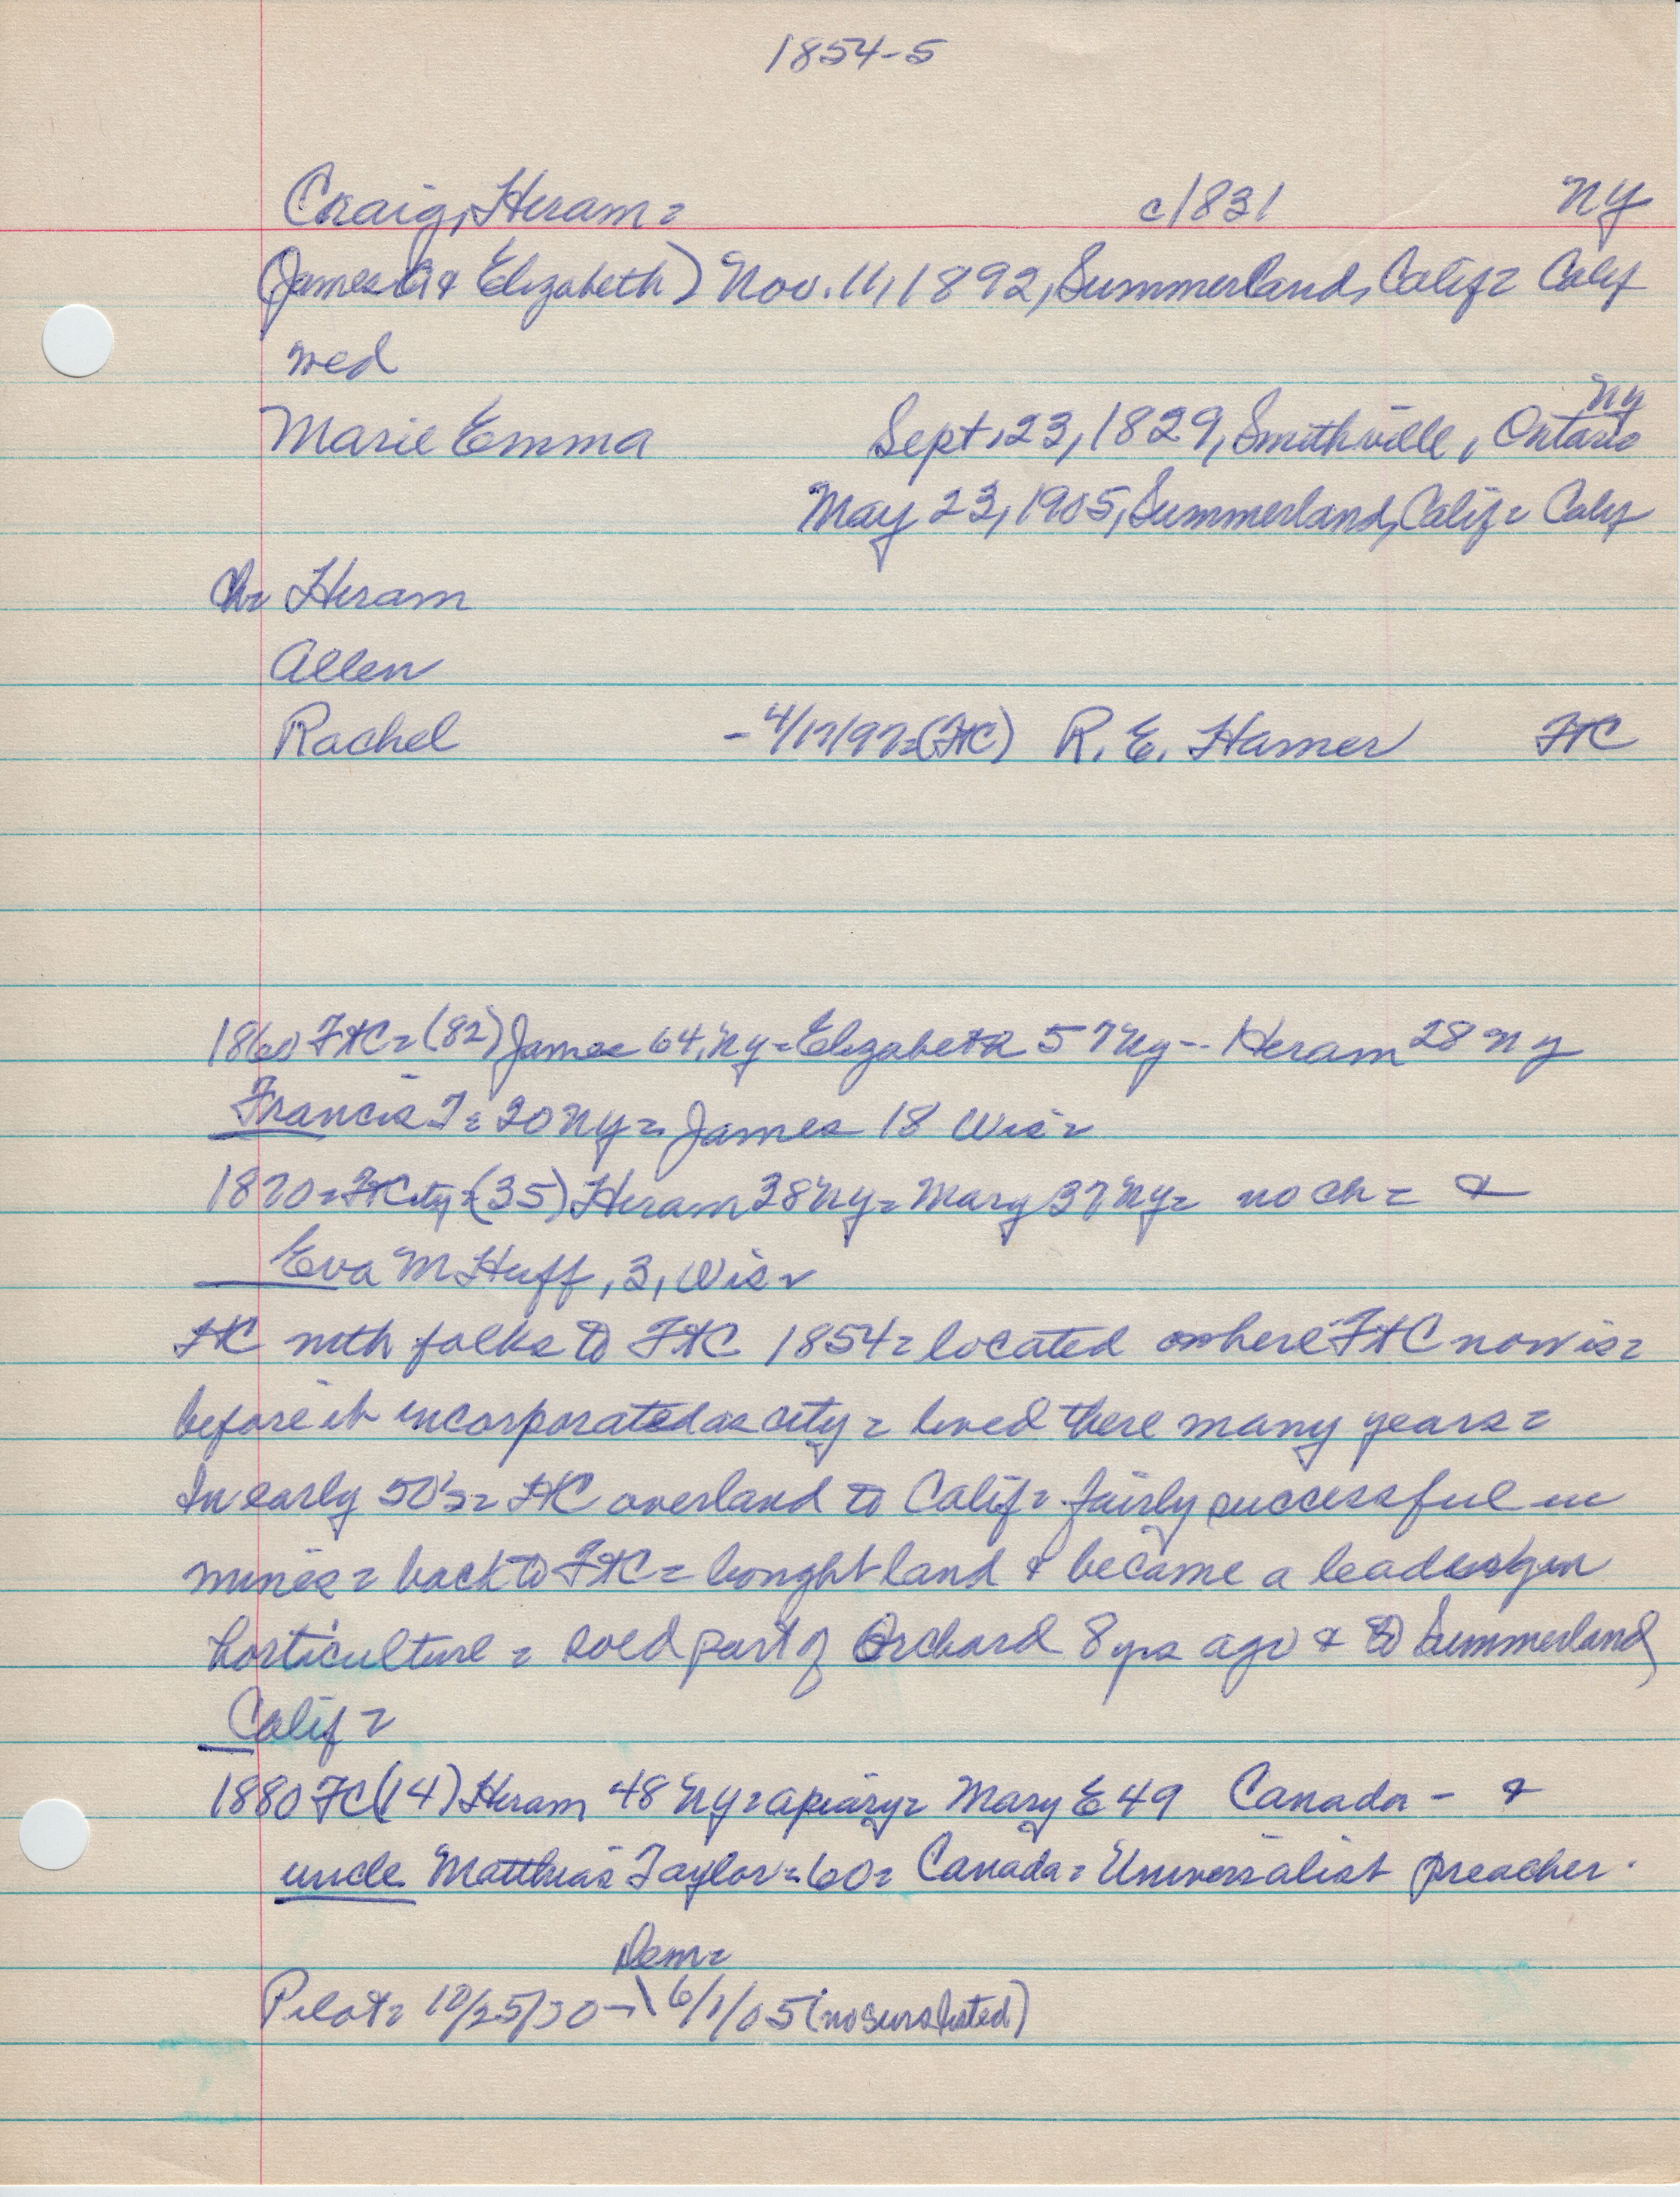 1854-5
Craig, Hiram = c1831 NY
(James A & Elizabeth) Nov. 11, 1892, Summerland, Calif = Calif
med
NY
Marie Emma Sept. 23, 1829, Smithville, Ontario
May 23, 1905, Summerland, Calif = Calif
Ch = Hiram
Allen
Rachel - 4/17/97 = (FtC) R. E. Hamer FtC
1860 FtC = (82) James 64, NY = Elizabeth 57 NY -- Hiram 28 NY
Francis T = 20 NY = James 18 Wis =
1870 = FtCity = (35) Hiram 38 NY = Mary 37 NY = no ch = &
Eva M Huff, 3, Wis =
HC with folks to FtC 1854 = located where FtC now is =
before it incorporated as city = lived there many years =
In early 50's = HC overland to Calif = fairly successful in
mines = back to FtC = bought land & became a leader in
horticulture = sold part of Orchard 8 yrs ago & to Summerland,
Calif =
1880 FC (14) Hiram 48 NY = apiary = Mary E 49 Canada - &
uncle Matthias Taylor = 60 = Canada = Universalist preacher.
Dem =
Pilot = 10/25/30 - \ 6/1/05 (no survs listed)